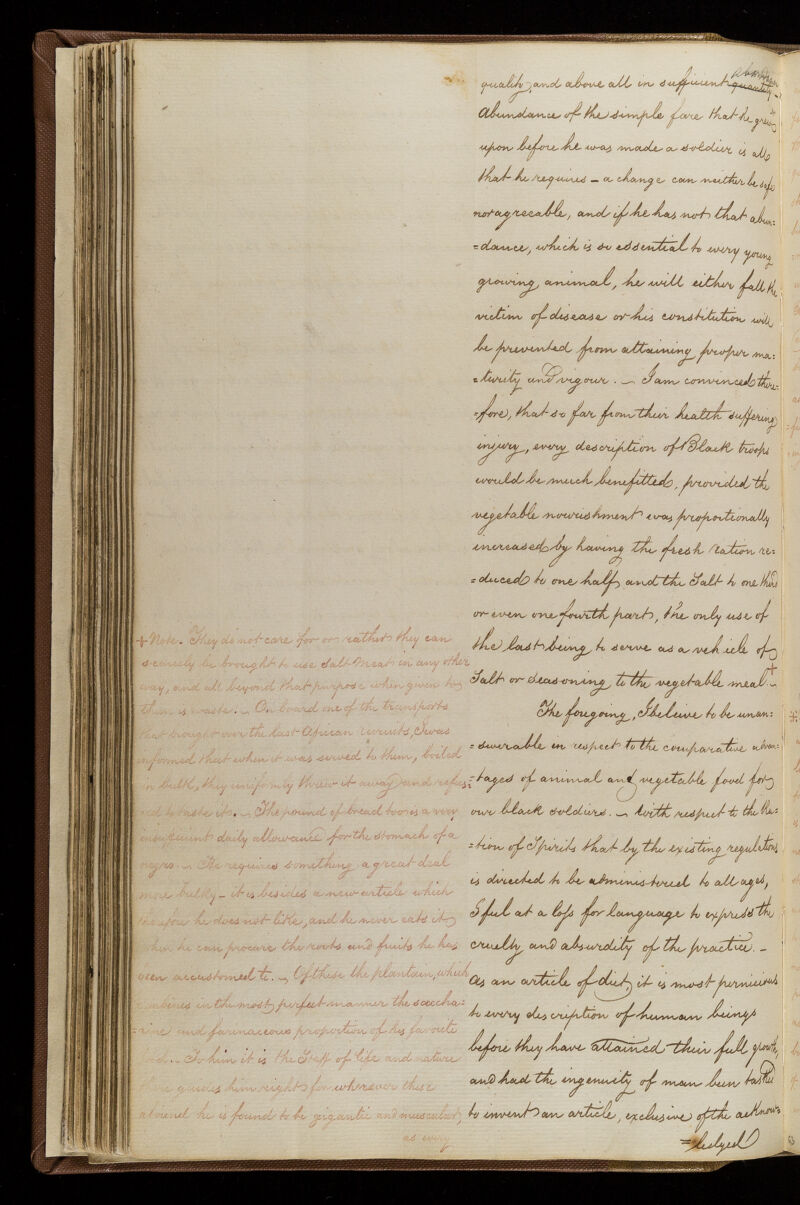 quality, and above all in sufficient quantity
abundance of the simple fare that he grew
upon before he was made a soldier is all
that he requires – a change can neither be safe
nor agreeable, and if he has not that abun=
=dance, which is so essential to every young
growing animal, he will either fall the
victim of disease or his constitution will
be prevented from attaining proper ma=
=turity and vigour. – I am convinced there=
=fore, that so far from their health suffering
injury, every description of Black troops
would be much benefitted, provided the
vegetable nourishment was proportionally
increased by having the fresh ration re=
=duced to one half and the Salt to one third
or even one fourth part, the only use of
the last being to serve as a vehicle of
Salt or seasoning to the vegetable meal. +
The foregoing, I beleive to be unan=
=swerable in respect to the comparative advan=
=tages of animal and vegetable food for
our black soldiers. – With respect to the Ra=
=tion of Spirits that by the existing regulations
is directed to be administered to all ages,
I feel at a loss for language to express the
cruelty and absurdity of the practice. –
As an article of diet, it is most pernicious
to every description of human beings
before they have attained their full growth,
and had the ingenuity of man been tasked
to invent an article, exclusive of the acknow=
=ledged
+ Note. They do not care for or rather they can
scarcely be brought to use Salt Meat in any other
way, and all beyond that purpose when given to
them is waste. – On board one of the transports
that brought over the last African recruits, I was
informed that when it was served to them, boiled
in bulk, they uniformly threw it away and refus=
=ed to taste it. – The pound of bread too is a very
insufficient daily allowance for the stomach of a
negro. – He requires something a great deal
more bulky – it is besides a new article which
he does not like, and he never eats it
when he can procure the roots and fruits he has
been accustomed to. – Of these the plantain, which
combines in the most perfect manner the saccha=
=rine and farinaceous proportion of his favorite
food. – To him it is the Staff of life and nature
guides him right for wherever these
abound he is found to be gigantic and muscular,
as every